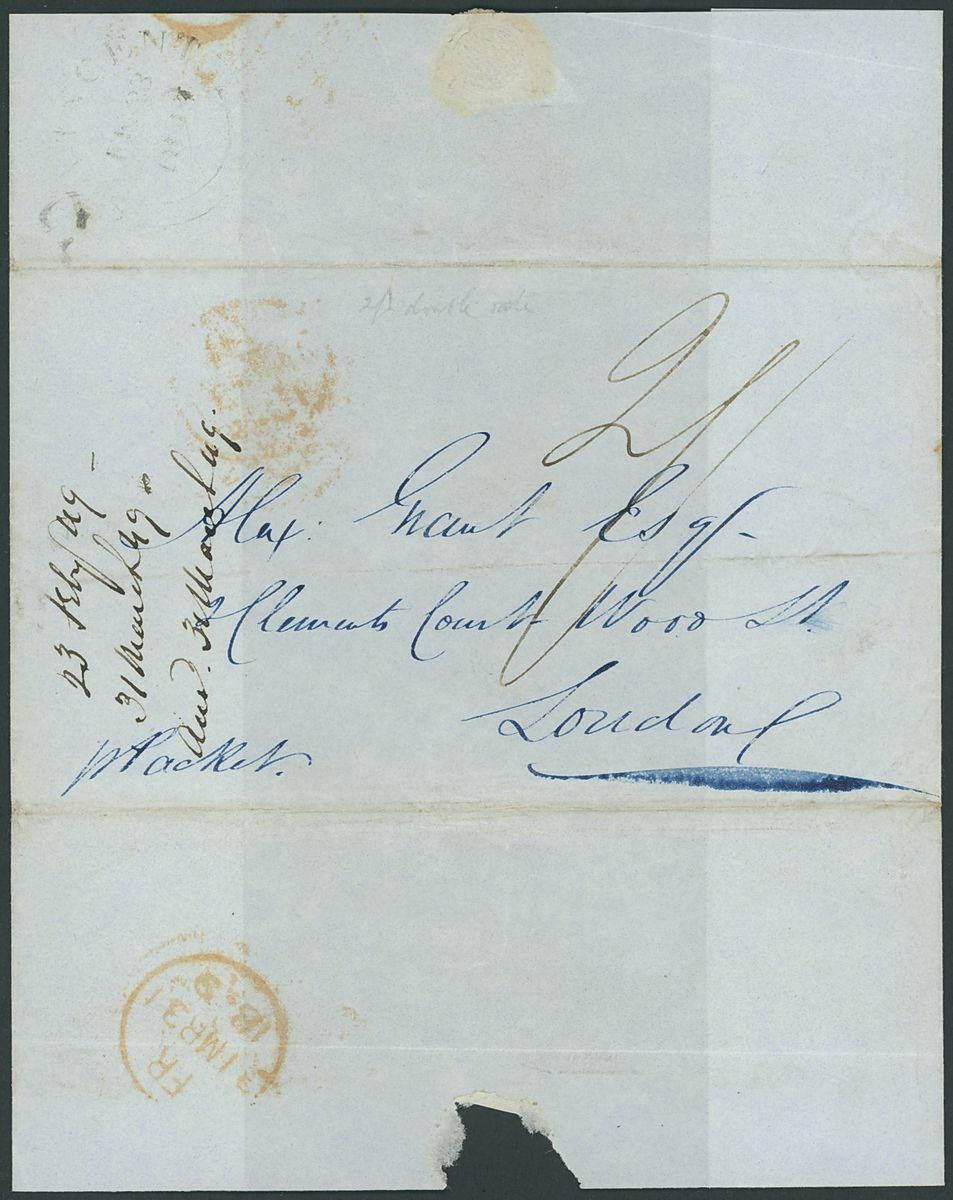 CENT
2/- double rate
2/
Alex: Grant Esqr-
2 Clements Court Wood St.
London
p Packet.
23 Feby 49 -
31 March 49 -
Ansd. 31 March 49.
FR
31 MR 31
18 9